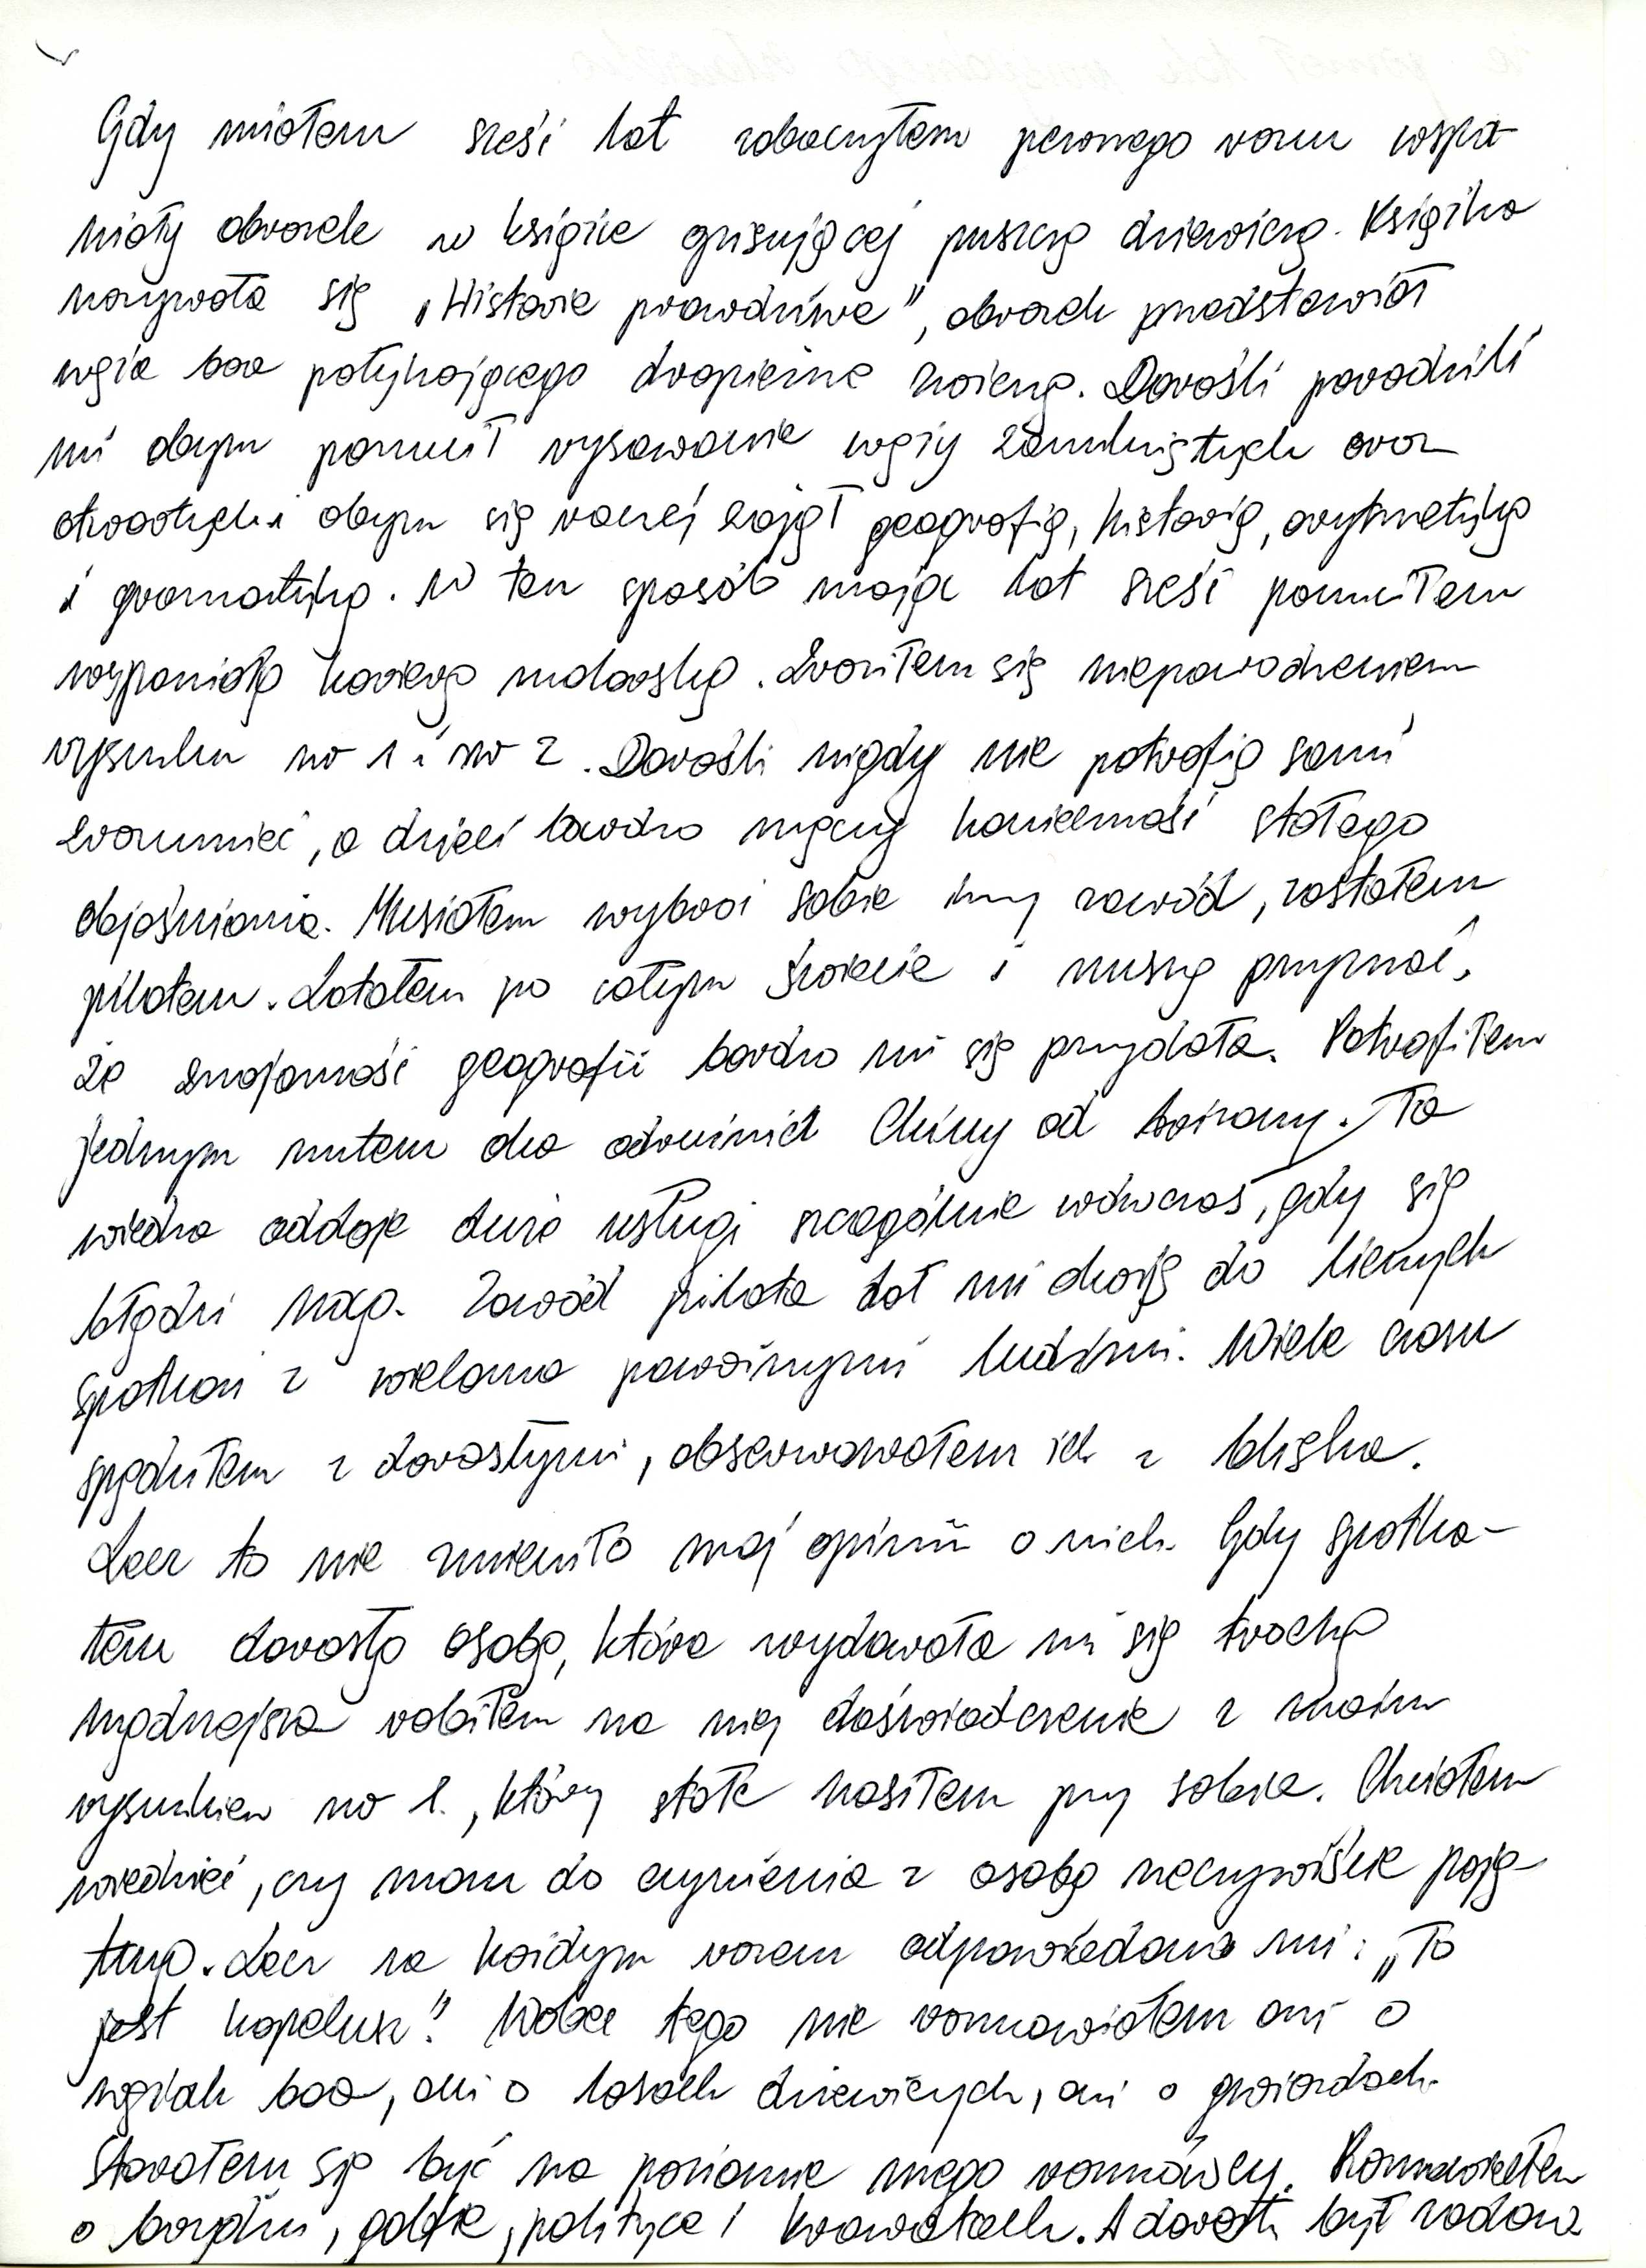 Gdy miałem sześć lat zobaczyłem pewnego razu wspa-
niały obrazek w książce opisującej puszczę dziewiczą. Książka
nazywała się „Historie prawdziwe”, obrazek przedstawiał
węża boa połykającego drapieżne zwierzę. Dorośli poradzili
mi abym porzucił rysowanie węży zamkniętych oraz
otwartych i abym się raczej zajął geografią, historią, arytmetyką
i gramatyką. W ten sposób mając lat sześć porzuciłem
wspaniałą karierę malarską. Zraziłem się niepowodzeniem
rysunku nr 1 i nr 2. Dorośli nigdy nie potrafią sami
zrozumieć, a dzieci bardzo męczy konieczność stałego
objaśniania. Musiałem wybrać sobie inny zawód, zostałem
pilotem. Latałem po całym świecie i muszę przyznać,
że znajomość geografii bardzo mi się przydała. Potrafiłem
jednym rzutem oka odróżnić Chiny od Arizony. Ta
wiedza oddaje duże usługi szczególnie wówczas, gdy się
błądzi nocą. Zawód pilota dał mi okazję do licznych
spotkań z wieloma poważnymi ludźmi. Wiele czasu
spędziłem z dorosłymi, obserwowałem ich z bliska.
Lecz to nie zmieniło mej opinii o nich. Gdy spotka-
łem dorosłą osobę, która wydawała mi się trochę
mądrzejsza robiłem na niej doświadczenie z moim
rysunkiem nr 1., który stale nosiłem przy sobie. Chciałem
wiedzieć, czy mam do czynienia z osobą rzeczywiście poję-
tną. Lecz za każdym razem odpowiadano mi: „To
jest kapelusz”. Wobec tego nie rozmawiałem ani o
wężach boa, ani o lasach dziewiczych, ani o gwiazdach.
Starałem się być na poziomie mego rozmówcy. Rozmawiałem
o brydżu, golfie, polityce i krawatach. A dorosły był rad że